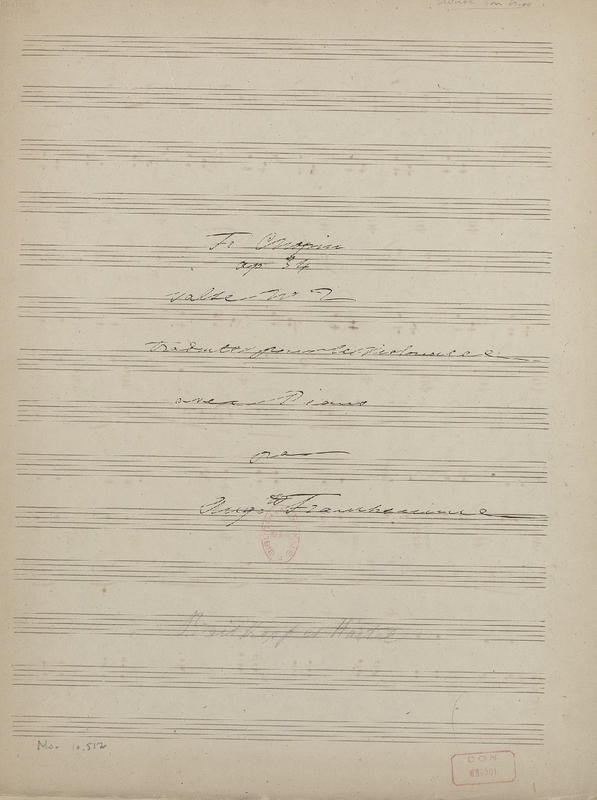 Fr Chopin
op 34
Valse No 2
traduite pour le Violoncelle
avec Piano
par
Aug^te Franchomme
Breitkopf et Härtel
Ms. 10.512
CON